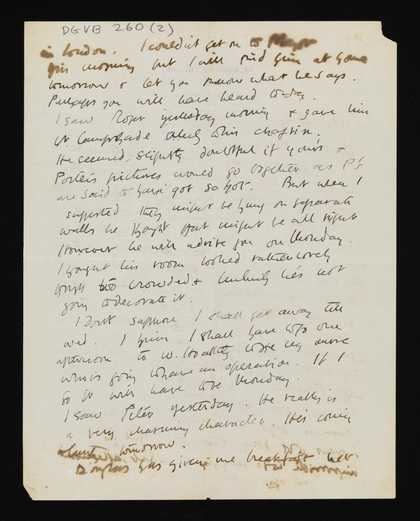 DGVB 260 (2)
in London. I couldn't get on to
this morning but I will find him at home
tomorrow & let you know what he says.
Perhaps you will have heard today.
I saw Roger yesterday morning & gave him
this chapter.
He seemed slightly doubtful if yours &
Porter's pictures would go together as P's
are said to have got so hot. But when I
suggested they might be hung on separate
walls he thought that might be all right
However he will advise you on Monday.
I thought his room looked rather lovely
crowded & he's not
going to decorate it.
I don't suppose I shall get away till
wed. I I shall have to go one
afternoon to
who is going to have an operation. If I
so it will have to be Monday.
I saw Peter yesterday. He really is
a very charming character. He's coming
tomorrow.
Douglas was giving me breakfast